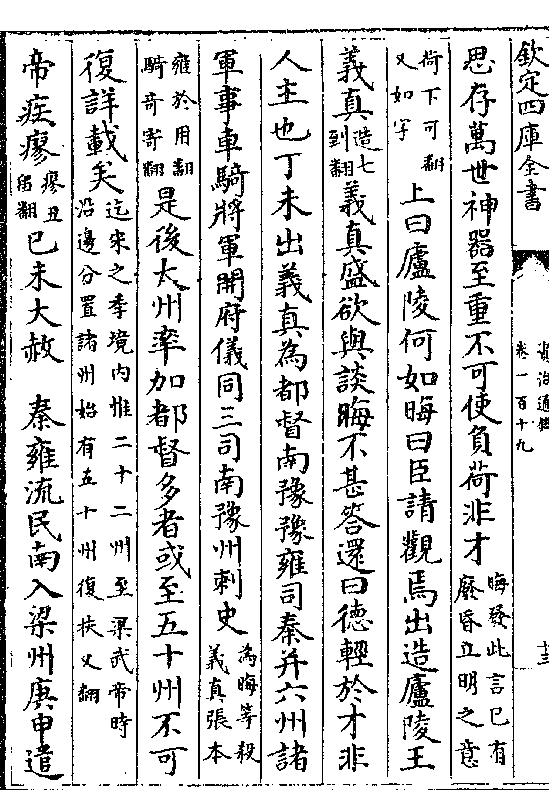 欽定四庫全書
卷一百十九
思存萬世神器至重不可使負荷非才晦發此言已有廢昏立明之意
荷下可翻又如字上曰廬陵何如晦曰臣請觀焉出造廬陵王
義真造七到翻義真盛欲與談晦不甚答還曰德輕於才非
人主也丁未出義真為都督南豫豫雍司秦并六州諸
軍事車騎將軍開府儀同三司南豫州刺史為晦等殺義真張本
雍於用翻騎奇寄翻是後大州率加都督多者或至五十州不可
復詳載矣迄宋之季境内惟二十二州至梁武帝時沿邊分置諸州始有五十州復扶又翻
帝疾瘳瘳丑留翻已未大赦 秦雍流民南入梁州庚申遣